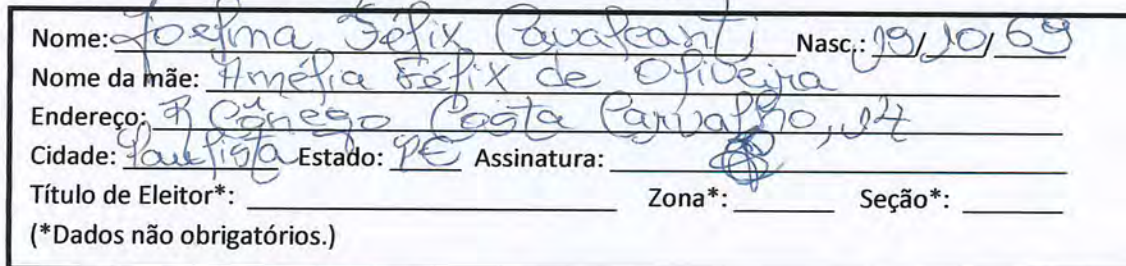 Nome: Josefina Félix Cavalcanti Nasc.: 19/10/69
Nome da mãe: Amélia Félix de Oliveira
Endereço: R Cônego Costa Carvalho, 17
Cidade: Paulista Estado: PE Assinatura:
Título de Eleitor*: Zona*: Seção*:
(*Dados não obrigatórios.)